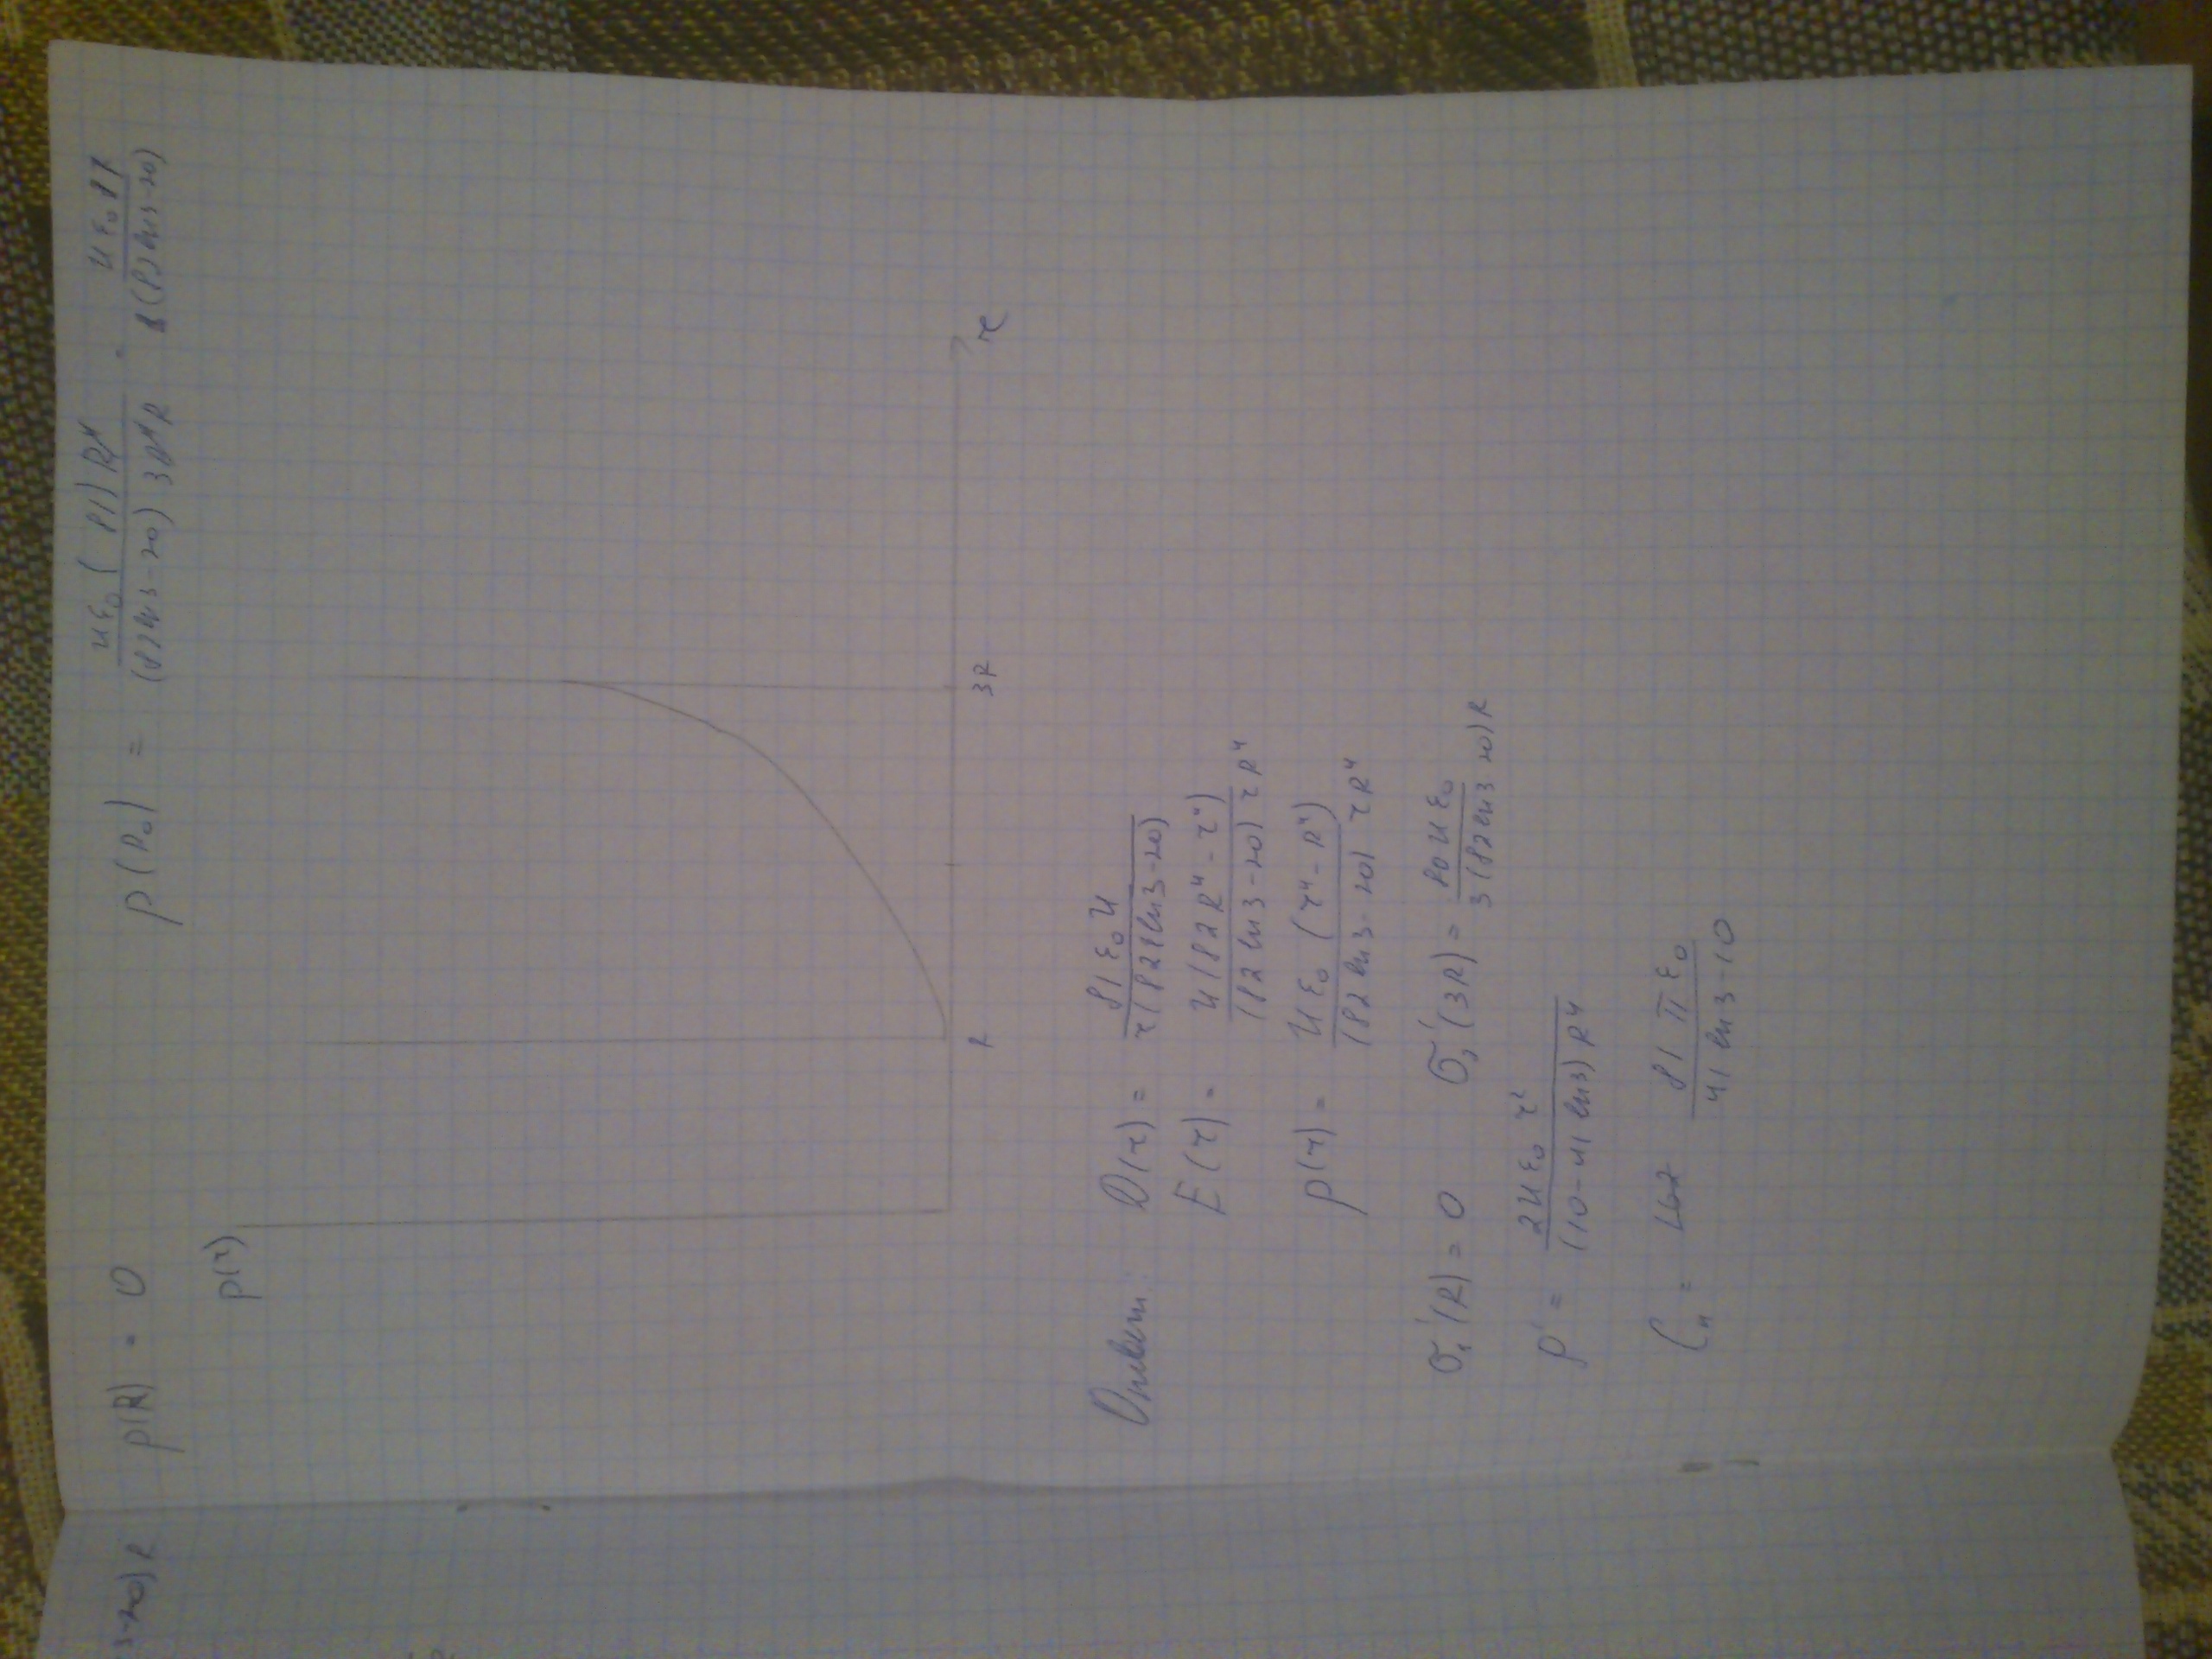 3-20) R
p(R) = 0
p(R₀) = uε₀( 81) R⁴ / (82ln3-20) 3R⁴R = uε₀ 81 / (82ln3-20)
p(r)
R 3R r
Ответ: D(r) = 81 ε₀ u / r(82ln3-20)
E(r) = u(82R⁴ - r⁴) / (82 ln3-20) r R⁴
p(r) = uε₀ (r⁴ - R⁴) / (82 ln3-20) r R⁴
σ₁'(R) = 0 σ₂'(3R) = 80uε₀ / 3(82ln3-20)R
ρ' = 2uε₀ r² / (10-41 ln3) R⁴
Cₙ = 162 81 π ε₀ / 41 ln3-10